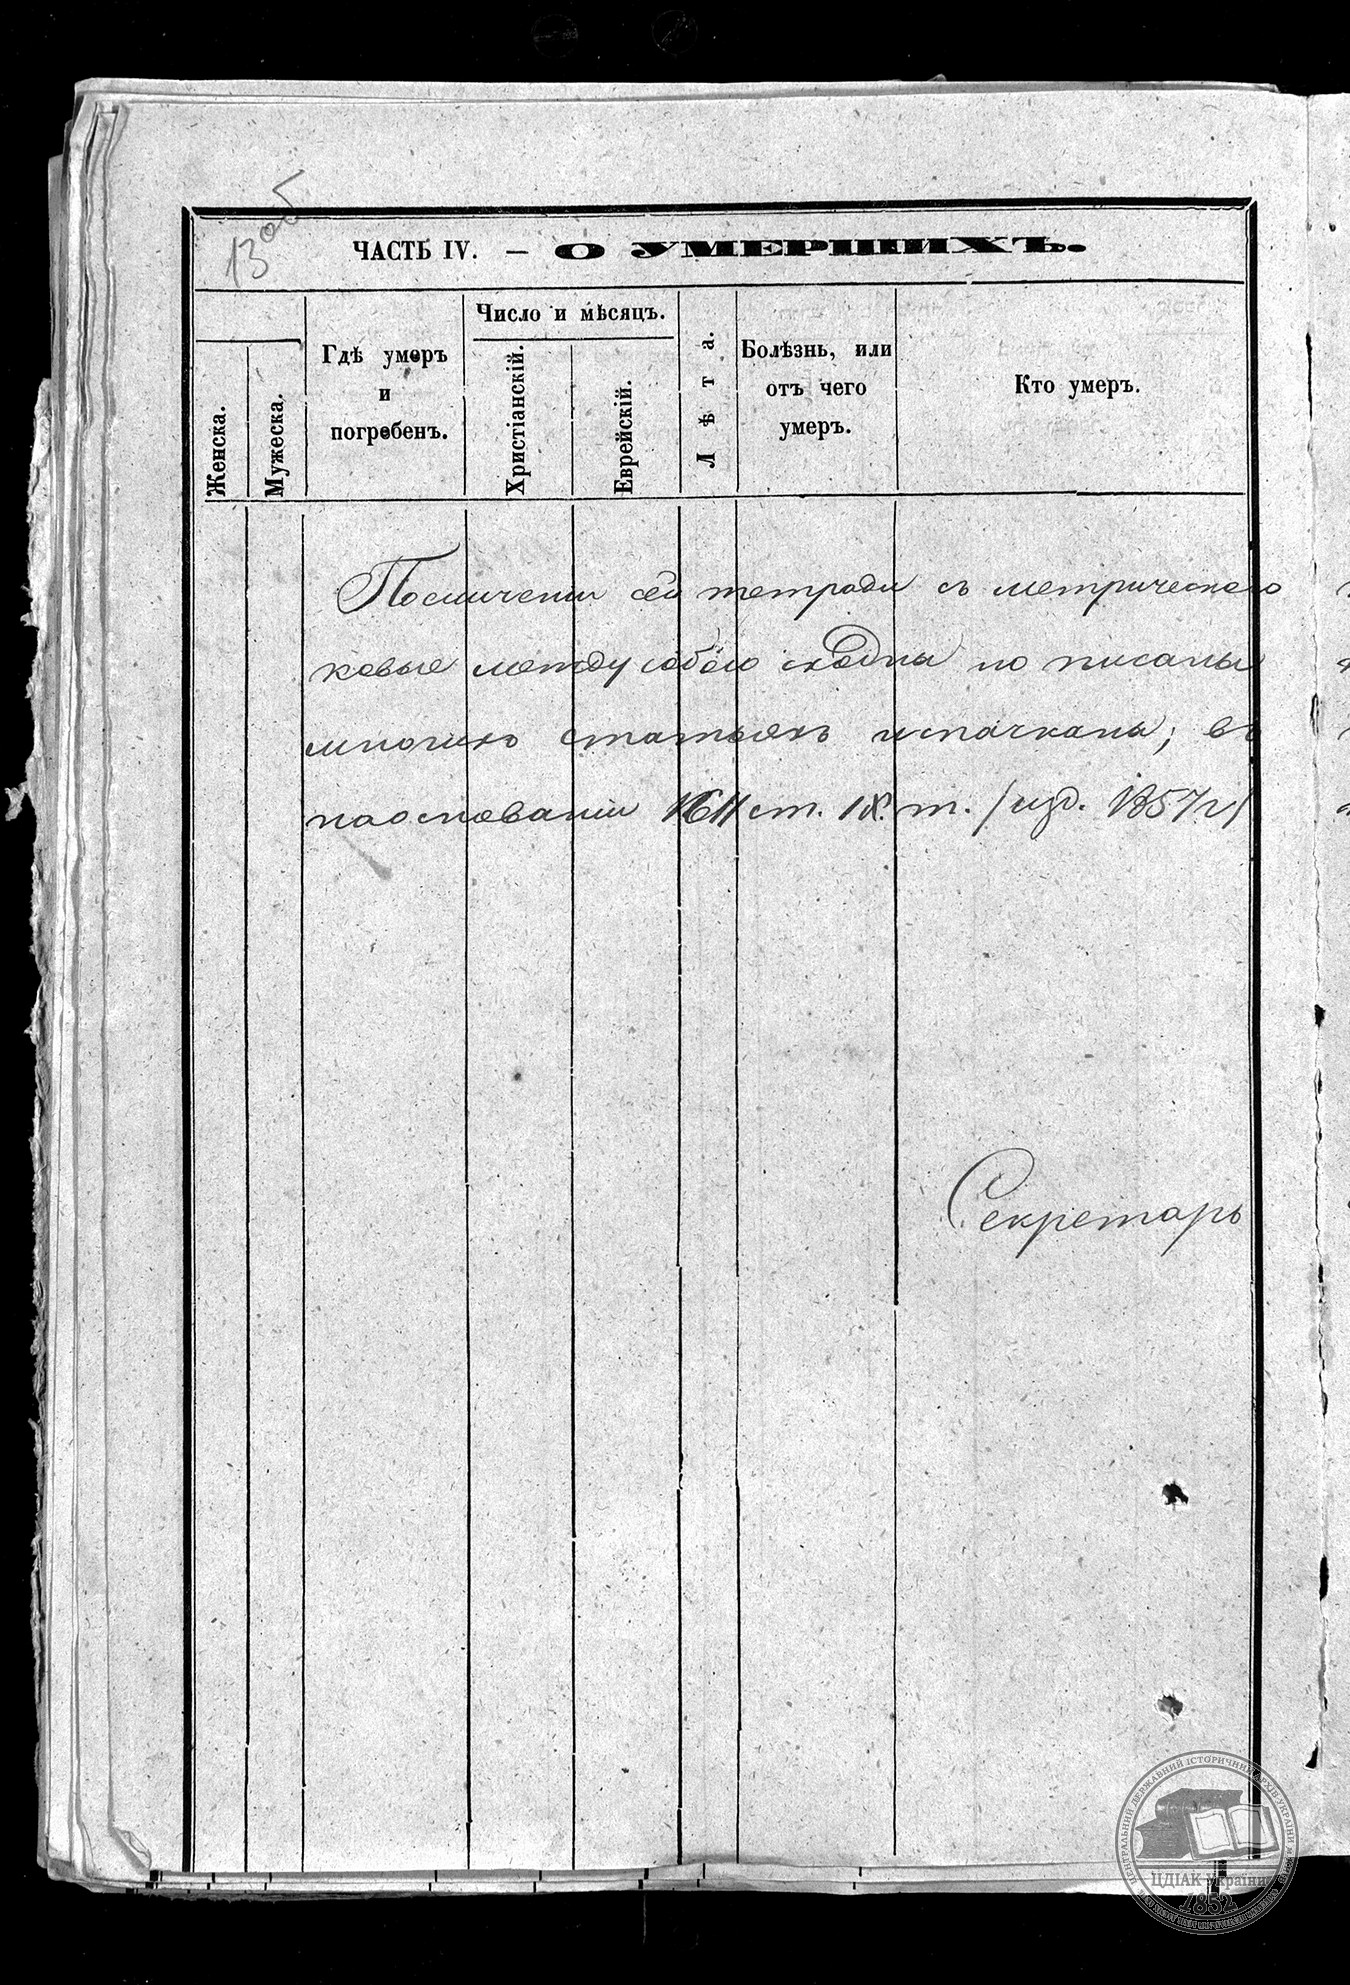 13 об
ЧАСТЬ IV. — О УМЕРШИХЪ.
Женска.
Мужеска.
Гдѣ умеръ
и
погребенъ.
Число и мѣсяцъ.
Христіанскій.
Еврейскій.
Лѣта.
Болѣзнь, или
отъ чего
умеръ.
Кто умеръ.
По сличеніи сей тетради съ метрическаго
ковые между собою сходны но писаны
многихъ статьяхъ испачканы; въ
на основаніи 1611 ст. IX. т. /изд. 1857 г/
Секретарь
ЦЕНТРАЛЬНИЙ ДЕРЖАВНИЙ ІСТОРИЧНИЙ АРХІВ УКРАЇНИ
ЦДІАК України
1852